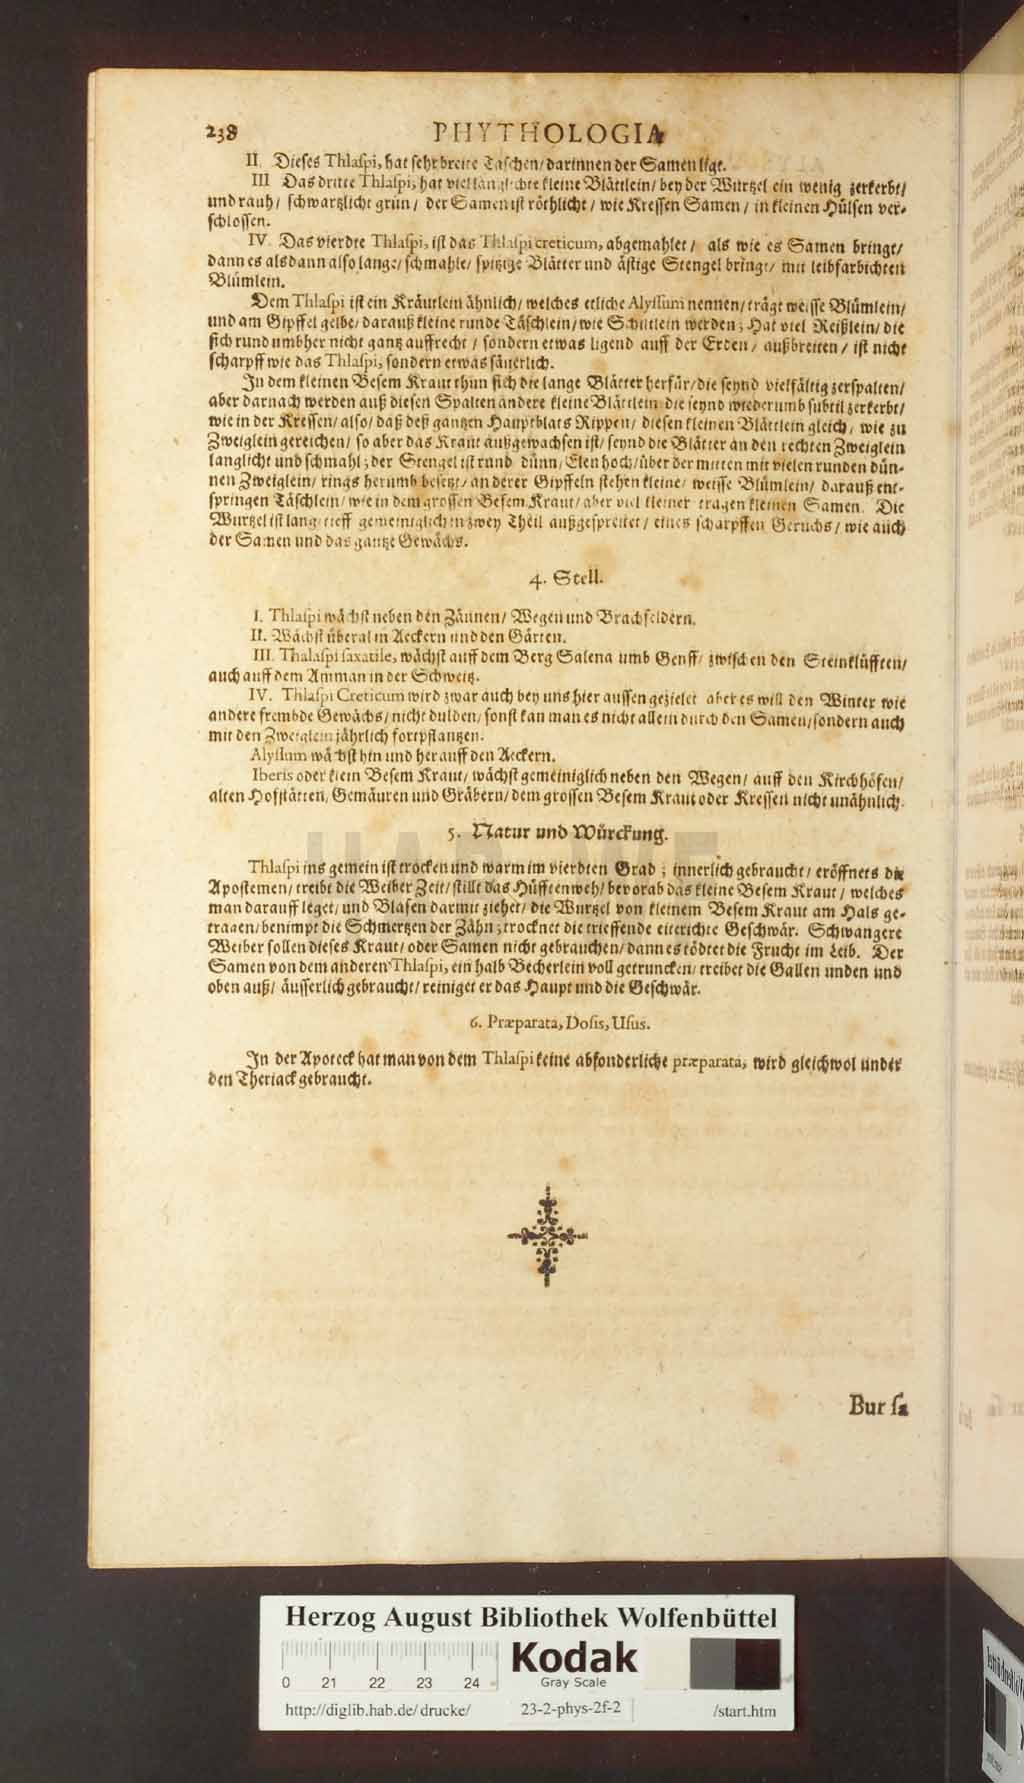 238
PHYTHOLOGIA
II. Dieses Thlaſpi, hat ſehr breite Taſchen/ darinnen der Samen ligt.
III Das dritte Thlaſpi, hat viel langlichte kleine Blåttlein/ bey der Wurtzel ein wenig zerkerbt/
und rauh/ ſchwartzlicht grün/ der Samen iſt röthlicht/ wie Kreſſen Samen/ in kleinen Hülſen ver-
ſchloſſen.
IV. Das vierdte Thlaſpi, iſt das Thlaſpi creticum, abgemahlet/ als wie es Samen bringt/
dann es alsdann alſo lange/ ſchmahle/ ſpitzige Blätter und äſtige Stengel bringt/ mit leibfarbichten
Blümlein.
Dem Thlaſpi iſt ein Kräutlein ähnlich/ welches etliche Alyſſum nennen/ trägt weiſſe Blümlein/
und am Gipffel gelbe/ darauß kleine runde Täſchlein/ wie Schiltlein werden; Hat viel Reißlein/ die
ſich rund umbher nicht gantz auffrecht/ ſondern etwas ligend auff der Erden/ außbreiten/ iſt nicht
ſcharpff wie das Thlaſpi, ſondern etwas ſäuerlich.
In dem kleinen Beſem Kraut thun ſich die lange Blätter herfür/ die ſeynd vielfältig zerſpalten/
aber darnach werden auß dieſen Spalten andere kleine Blättlein/ die ſeynd wiederumb ſubtil zerkerbt/
wie in der Kreſſen/ alſo/ daß deß gantzen Hauptblats Rippen/ dieſen kleinen Blättlein gleich/ wie zu
Zweiglein gereichen/ ſo aber das Kraut außgewachſen iſt/ ſeynd die Blätter an den rechten Zweiglein
langlicht und ſchmahl; der Stengel iſt rund dünn/ Elen hoch/ über der mitten mit vielen runden dün-
nen Zweiglein/ rings herumb beſetzt/ an derer Gipffeln ſtehen kleine/ weiſſe Blümlein/ darauß ent-
ſpringen Täſchlein/ wie in dem groſſen Beſem Kraut/ aber viel kleiner tragen kleinen Samen. Die
Wurtzel iſt lang/ tieff gemeiniglich in zwey Theil außgeſpreitet/ eines ſcharpffen Geruchs/ wie auch
der Samen und das gantze Gewächs.
4. Stell.
I. Thlaſpi wächſt neben den Zäunen/ Wegen und Brachfeldern.
II. Wächſt überal in Aeckern und den Gärten.
III. Thalaſpi ſaxatile, wächſt auff dem Berg Salena umb Genff/ zwiſchen den Steinklüfften/
auch auff dem Amman in der Schweitz.
IV. Thlaſpi Creticum wird zwar auch bey uns hier auſſen gezielet aber es will den Winter wie
andere frembde Gewächs/ nicht dulden/ ſonſt kan man es nicht allein durch den Samen/ ſondern auch
mit den Zweiglein jährlich fortpflantzen.
Alyſſum wächſt hin und her auff den Aeckern.
Iberis oder klein Beſem Kraut/ wächſt gemeiniglich neben den Wegen/ auff den Kirchhöfen/
alten Hofſtätten/ Gemäuren und Gräbern/ dem groſſen Beſem Kraut oder Kreſſen nicht unähnlich.
5. Natur und Würckung.
Thlaſpi ins gemein iſt trocken und warm im vierdten Grad; innerlich gebraucht/ eröffnets die
Apoſtemen/ treibt die Weiber Zeit/ ſtillt das Hüfftenweh/ bevorab das kleine Beſem Kraut/ welches
man darauff leget/ und Blaſen darmit ziehet/ die Wurtzel von kleinem Beſem Kraut am Hals ge-
tragen/ benimpt die Schmertzen der Zähn; trocknet die trieffende eiterichte Geſchwär. Schwangere
Weiber ſollen dieſes Kraut/ oder Samen nicht gebrauchen/ dann es tödtet die Frucht im Leib. Der
Samen von dem anderen Thlaſpi, ein halb Becherlein voll getruncken/ treibet die Gallen unden und
oben auß/ äuſſerlich gebraucht/ reiniget er das Haupt und die Geſchwär.
6. Præparata, Doſis, Uſus.
In der Apoteck hat man von dem Thlaſpi keine abſonderliche præparata, wird gleichwol under
den Theriack gebraucht.
Bur ſa
Herzog August Bibliothek Wolfenbüttel
0 21 22 23 24
Kodak
Gray Scale
http://diglib.hab.de/drucke/ 23-2-phys-2f-2 /start.htm